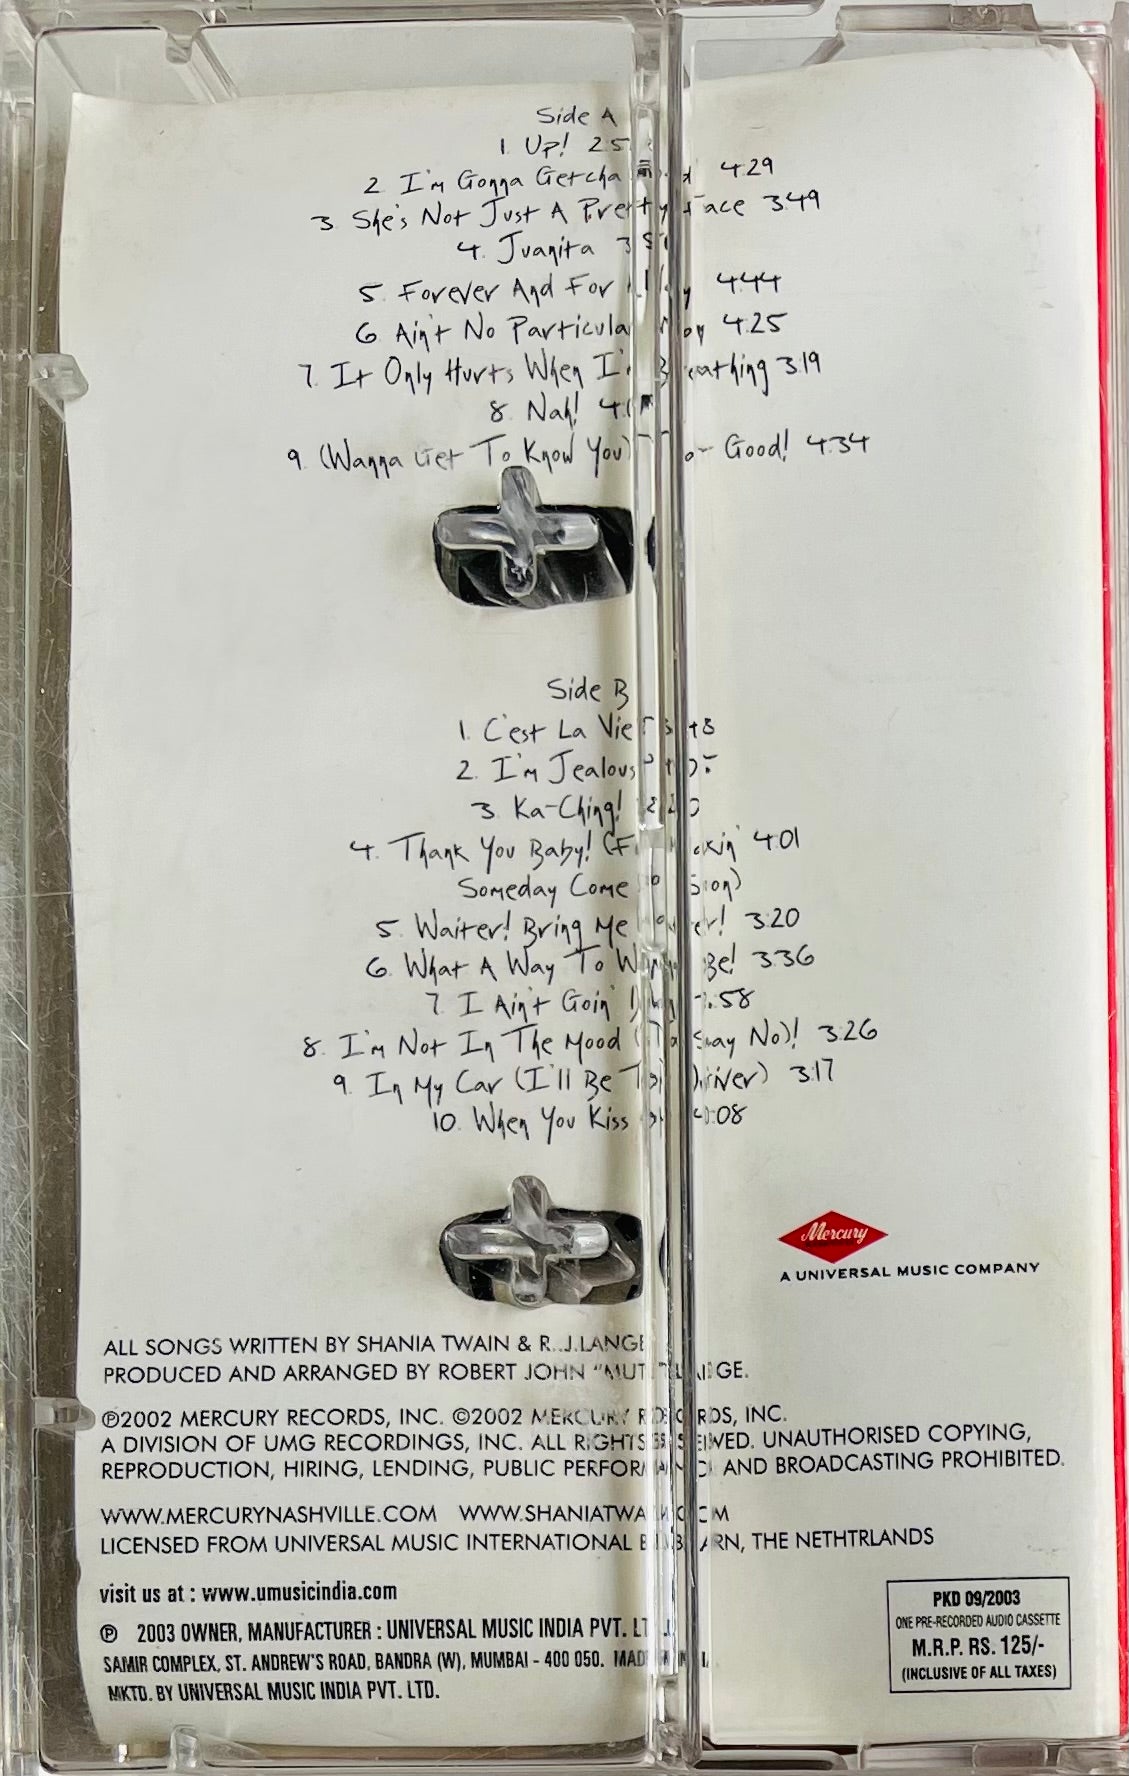 Side A
1. Up!
2. I'm Gonna Getcha 4:29
3. She's Not Just A Pretty Face 3:49
4. Juanita
5. Forever And For 4:44
6. Ain't No Particular 4:25
7. It Only Hurts When I'm Breathing 3:19
8. Nah!
9. (Wanna Get To Know You) Good! 4:34
Side B
1. C'est La Vie
2. I'm Jealous
3. Ka-Ching!
4. Thank You Baby! 4:01
Someday Come Soon)
5. Waiter! Bring Me 3:20
6. What A Way To Be! 3:36
7. I Ain't Goin'
8. I'm Not In The Mood Say No)! 3:26
9. In My Car (I'll Be Driver) 3:17
10. When You Kiss 4:08
Mercury
A UNIVERSAL MUSIC COMPANY
ALL SONGS WRITTEN BY SHANIA TWAIN & R.J.LANGE
PRODUCED AND ARRANGED BY ROBERT JOHN "MUTT" LANGE.
℗2002 MERCURY RECORDS, INC. ©2002 MERCURY RECORDS, INC.
A DIVISION OF UMG RECORDINGS, INC. ALL RIGHTS RESERVED. UNAUTHORISED COPYING,
REPRODUCTION, HIRING, LENDING, PUBLIC PERFORMANCE AND BROADCASTING PROHIBITED.
WWW.MERCURYNASHVILLE.COM WWW.SHANIATWAIN.COM
LICENSED FROM UNIVERSAL MUSIC INTERNATIONAL THE NETHTRLANDS
visit us at : www.umusicindia.com
℗ 2003 OWNER, MANUFACTURER : UNIVERSAL MUSIC INDIA PVT. LTD.
SAMIR COMPLEX, ST. ANDREW'S ROAD, BANDRA (W), MUMBAI - 400 050. MADE IN INDIA
MKTD. BY UNIVERSAL MUSIC INDIA PVT. LTD.
PKD 09/2003
ONE PRE-RECORDED AUDIO CASSETTE
M.R.P. RS. 125/-
(INCLUSIVE OF ALL TAXES)